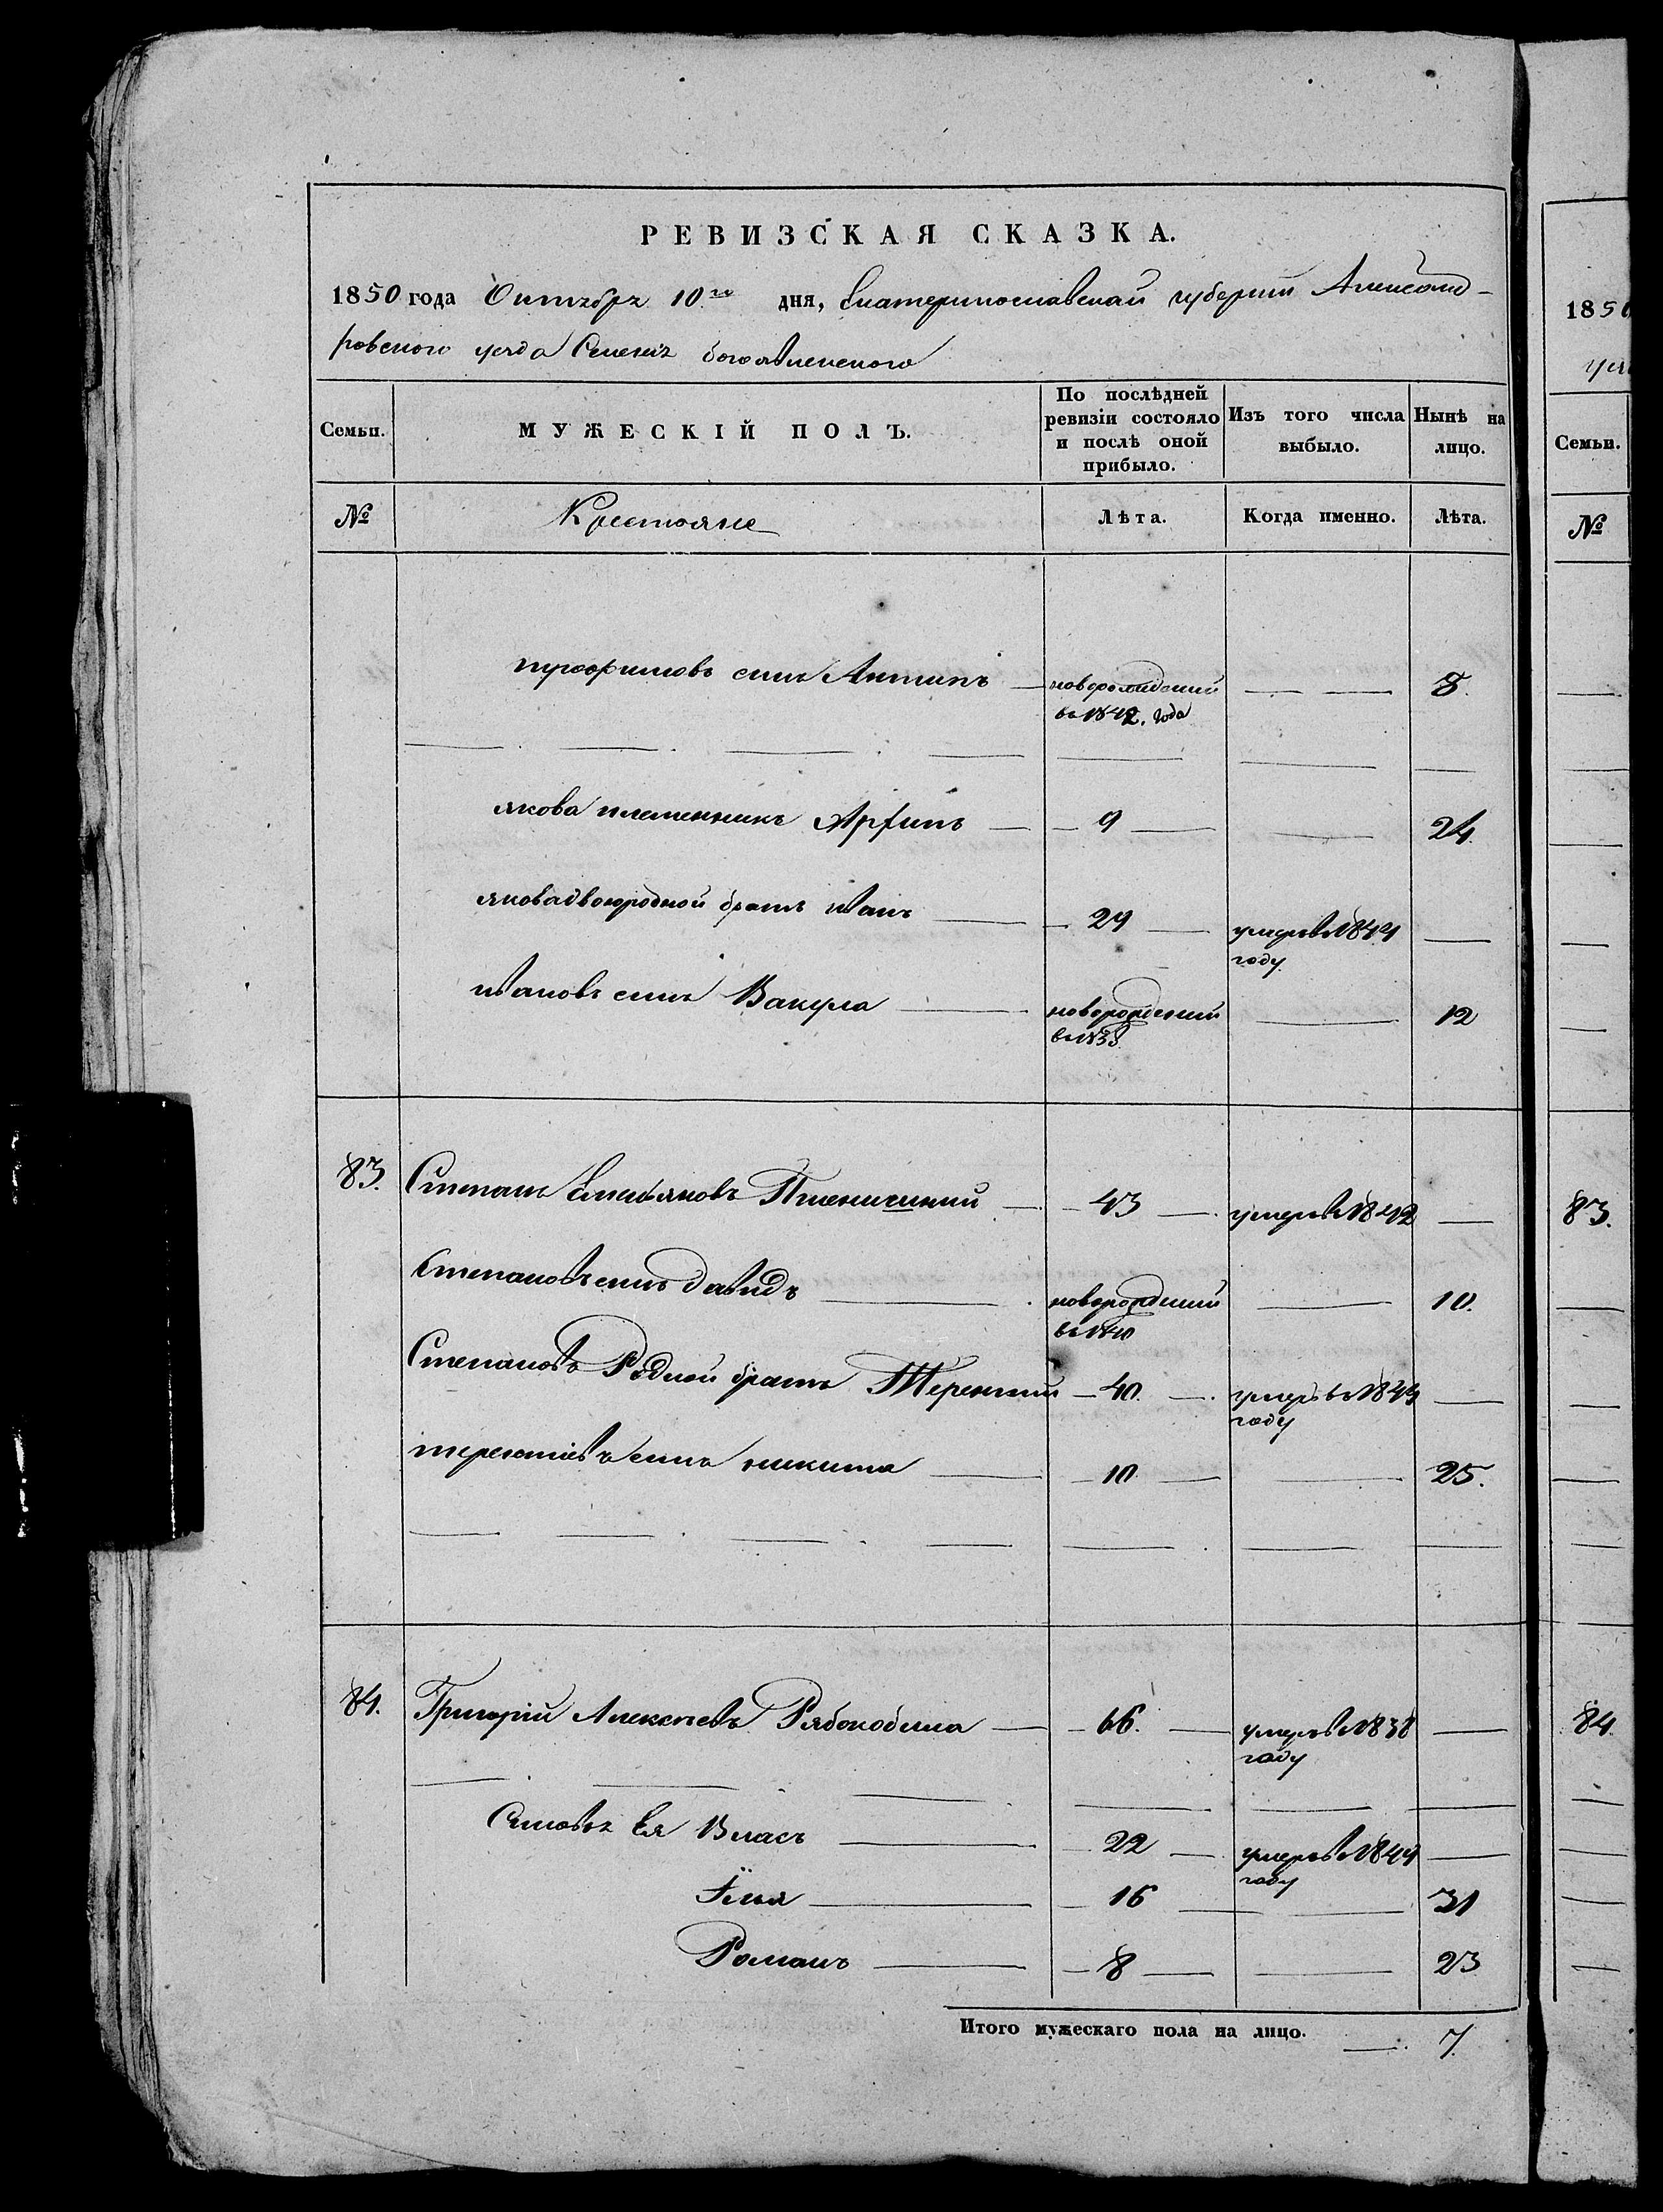 РЕВИЗСКАЯ СКАЗКА.
1850 года Октября 10го дня, Екатеринославской губернии Александ-
ровского уезда Селения богоявленского
Семьи.
МУЖЕСКІЙ ПОЛЪ.
По послѣдней ревизіи состояло и послѣ оной прибыло.
Изъ того числа выбыло.
Нынѣ на лицо.
№ Крестояне Лѣта. Когда именно. Лѣта.
трофимовъ синъ Антипъ — новорожденний — — 8.
въ 1842. года
якова племенникъ Архипъ — 9 — — 24.
якова двоюродной братъ иванъ — 29 — умеръ в 1844 —
году.
ивановъ синъ Вакула — новорожденний — 12
въ 1838.
83. Степанъ Емельяновъ Пшеничний — 43 — умеръ в 1842 —
степановъ синъ давидъ — новорожденний — 10.
въ 1840
Степановъ Родной братъ Терентий — 40. — умеръ въ 1844 —
году
терентиевъ синъ никита — 10 — — 25.
84. Григорій Алексеевъ Рябокобила — 66. — умеръ в 1838 —
году
Синовья Ея Власъ — 22 — умеръ в 1844 —
году
Їлья — 16 — — 31
Романъ — 8 — — 23
Итого мужескаго пола на лицо. — 7.
1850
уез
Семьи.
№
83.
84.